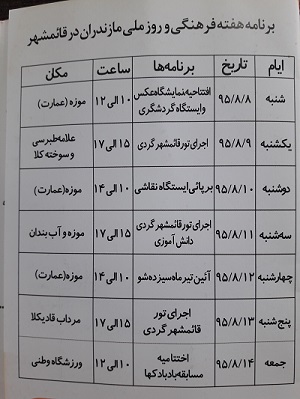 برنامه هفته فرهنگی و روز ملی مازندران در قائمشهر
ایام تاریخ برنامه‌ها ساعت مکان
شنبه ۹۵/۸/۸ افتتاحیه نمایشگاه عکس ۱۰ الی ۱۲ موزه (عمارت)
وایستگاه گردشگری
یکشنبه ۹۵/۸/۹ اجرای تور قائمشهر گردی ۱۵ الی ۱۷ علامه طبرسی
و سوخته کلا
دوشنبه ۹۵/۸/۱۰ برپائی ایستگاه نقاشی ۱۰ الی ۱۴ موزه (عمارت)
سه‌شنبه ۹۵/۸/۱۱ اجرای تور قائمشهر گردی ۱۵ الی ۱۷ موزه و آب بندان
دانش آموزی
چهارشنبه ۹۵/۸/۱۲ آئین تیرماه سیزده شو ۱۰ الی ۱۴ موزه (عمارت)
پنج‌شنبه ۹۵/۸/۱۳ اجرای تور ۱۵ الی ۱۷ مرداب قادیکلا
قائمشهر گردی
جمعه ۹۵/۸/۱۴ اختتامیه ۱۰ الی ۱۲ ورزشگاه وطنی
مسابقه بادبادکها